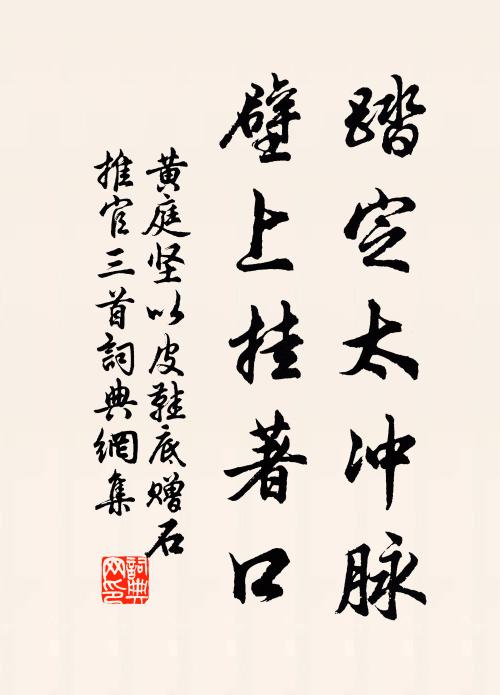 踏定太冲脉
壁上挂著口
黄庭坚以皮鞋底赠石
推官三首詞典網集
詞典
网印